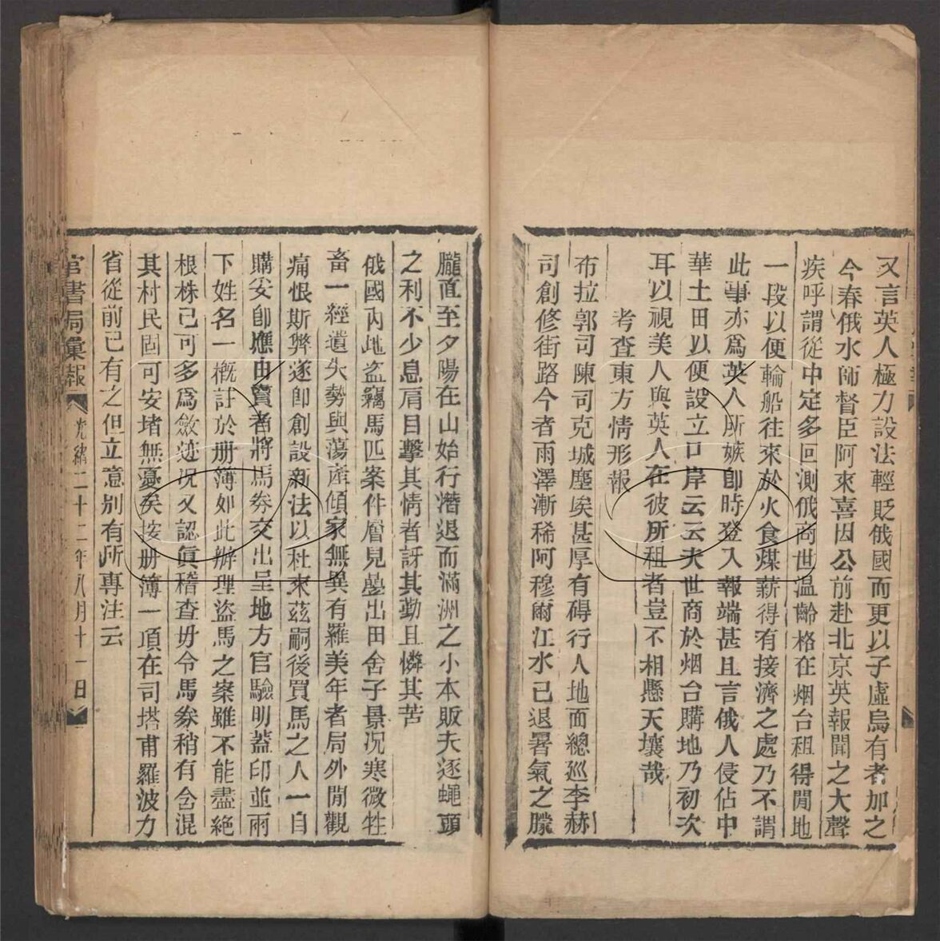 又言英人極力設法輕貶俄國而更以子虛烏有者加之
今春俄水師督臣阿來喜因公前赴北京英報聞之大聲
疾呼謂從中定多回測俄商世温齡格在烟台租得閒地
一段以便輪船往來於火食煤薪得有接濟之處乃不謂
此事亦爲英人所嫉卽時登入報端甚且言俄人侵佔中
華土田以便設立口岸云云夫世商於烟台購地乃初次
耳以視美人與英人在彼所租者豈不相懸天壤哉
考查東方情形報
布拉郭司陳司克城塵埃甚厚有碍行人地面總巡李赫
司創修街路今者雨澤漸稀阿穆爾江水已退暑氣之朦
朧直至夕陽在山始行潛退而滿洲之小本販夫逐蠅頭
之利不少息肩目擊其情者訝其勤且憐其苦
俄國內地盜竊馬匹案件層見疊出田舍子景况寒微牲
畜一經遺失勢與蕩產傾家無異有羅美年者局外閒觀
痛恨斯弊遂卽創設新法以杜來茲嗣後買馬之人一自
購妥卽應由賣者將馬券交出呈地方官驗明蓋印並兩
下姓名一概計於册簿如此辦理盜馬之案雖不能盡絕
根株已可多爲斂迹况又認眞稽查毋令馬券稍有含混
其村民固可安堵無憂矣按册簿一項在司塔甫羅波力
省從前已有之但立意别有所專注云
官書局彙報 光緒二十二年八月十一日